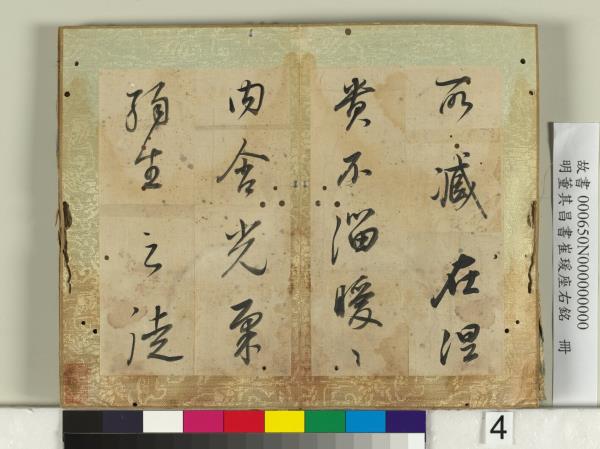 所臧在涅
貴不淄曖〻
内含光柔
弱生之徒
故書 000650N000000000
明董其昌書崔瑗座右銘 冊
4